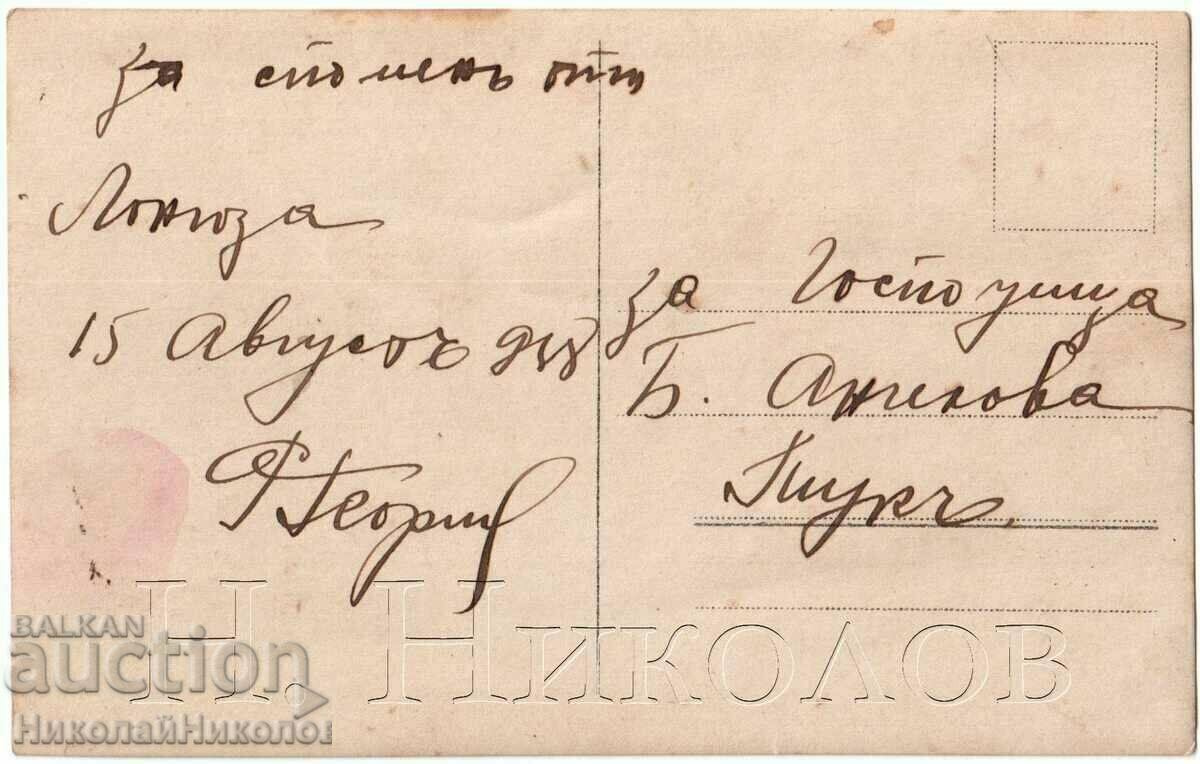 за споменъ отъ
15 Августъ 918
Георги
за Господица
Б. Ангелова
Тукъ.
Н. Николов
BALKAN
auction
НиколайНиколов